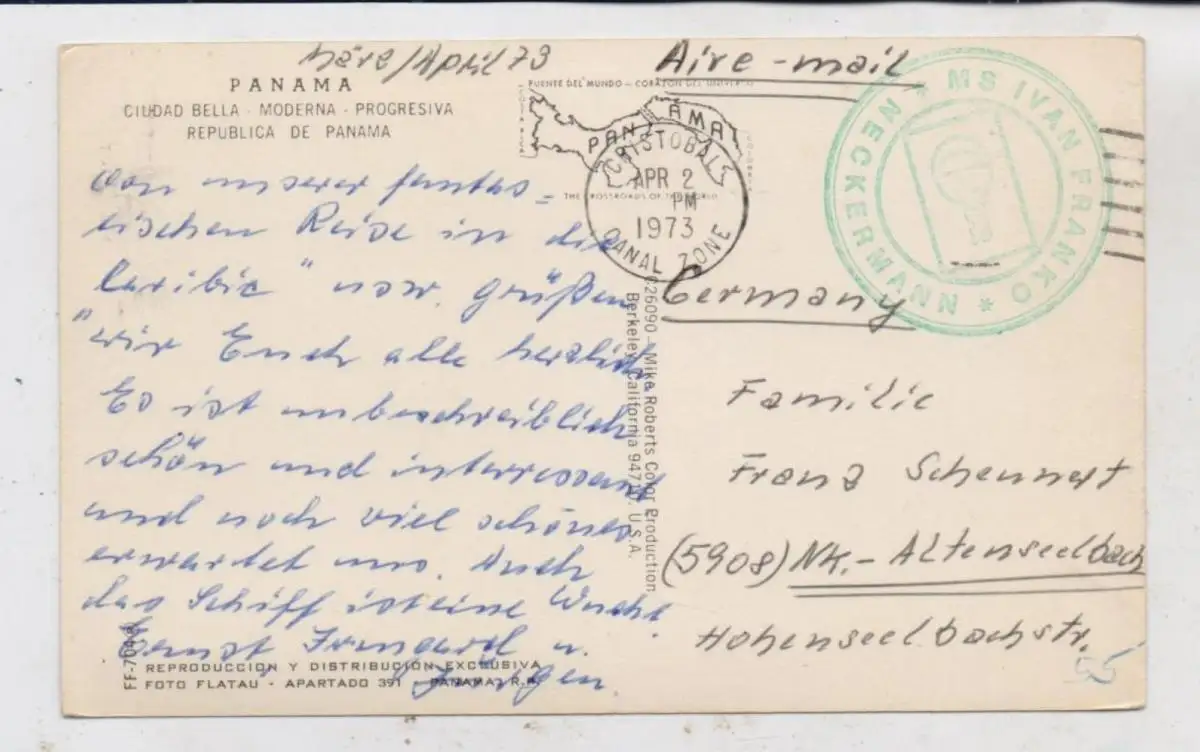 März/April 73
PANAMA
CIUDAD BELLA · MODERNA · PROGRESIVA
REPUBLICA DE PANAMA
Von unserer fantas-
tischen Reise in die
"Caribic" usw. grüßen
wir Euch alle herzlich
Es ist unbeschreiblich
schön und interressant
und noch viel schönes
erwartet uns. Auch
das Schiff ist eine Wucht.
Ernst, Irmgard u.
Jürgen.
FF-7048
REPRODUCCION Y DISTRIBUCIÓN EXCLUSIVA
FOTO FLATAU · APARTADO 391 · PANAMA, R.P.
C26090 — Mike Roberts Color Production
Berkeley, California 94710 U.S.A.
Aire-mail
PUENTE DEL MUNDO — CORAZON DEL UNIVERSO
COSTA RICA
PANAMA
COLOMBIA
THE CROSSROADS OF THE WORLD
CRISTOBAL
APR 2
PM
1973
CANAL ZONE
* MS IVAN FRANKO * NECKERMANN
Germany
Familie
Franz
(5908) NK.-Altenseelbach
Hohenseelbachstr.
55